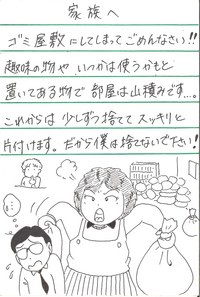 家族へ
ゴミ屋敷にしてしまってごめんなさい!!
趣味の物や いつかは使うかもと
置いてある物で 部屋は山積みです…。
これからは 少しずつ捨てて スッキリと
片付けます。だから僕は捨てないで下さい!